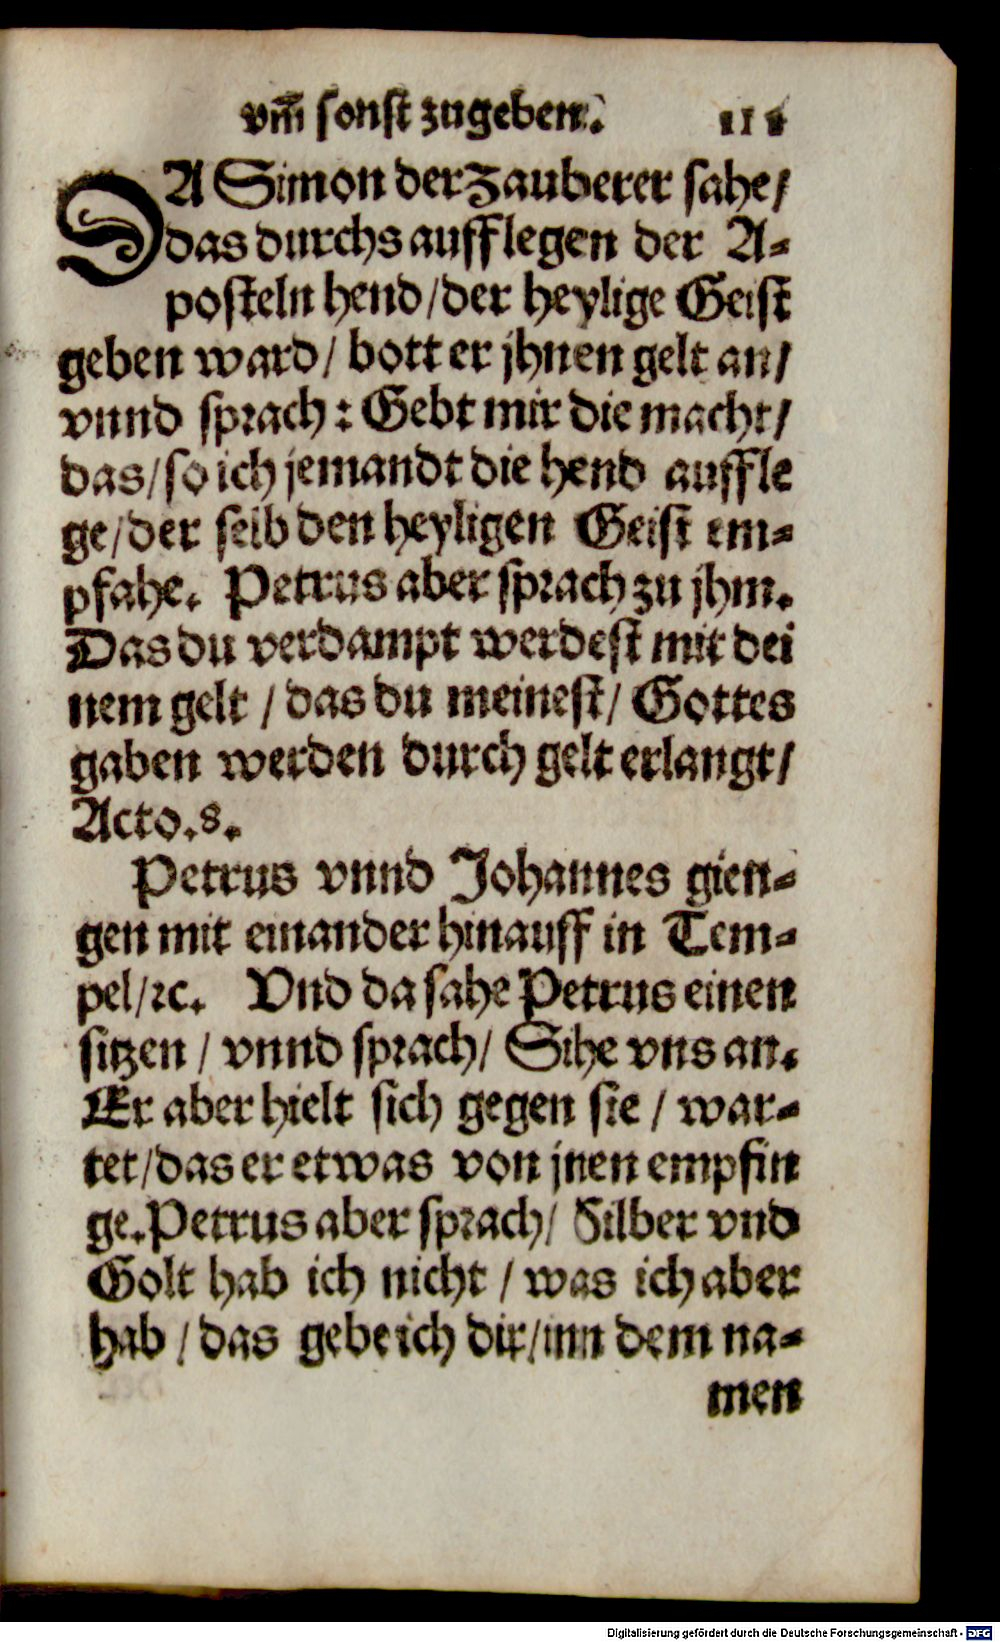 vm̃ sonst zugeben. 111
DA Simon der Zauberer sahe/
das durchs aufflegen der A-
posteln hend/der heylige Geist
geben ward/ bott er jhnen gelt an/
vnnd sprach: Gebt mir die macht/
das/so ich jemandt die hend auffle
ge/der selb den heyligen Geist em-
pfahe. Petrus aber sprach zu jhm.
Das du verdampt werdest mit dei
nem gelt / das du meinest/ Gottes
gaben werden durch gelt erlangt/
Acto.8.
Petrus vnnd Johannes gien-
gen mit einander hinauff in Tem-
pel/ꝛc. Vnd da sahe Petrus einen
sitzen / vnnd sprach/ Sihe vns an.
Er aber hielt sich gegen sie / war-
tet/das er etwas von jnen empfin
ge.Petrus aber sprach/ Silber vnd
Golt hab ich nicht / was ich aber
hab / das gebe ich dir/inn dem na-
men
Digitalisierung gefördert durch die Deutsche Forschungsgemeinschaft - DFG